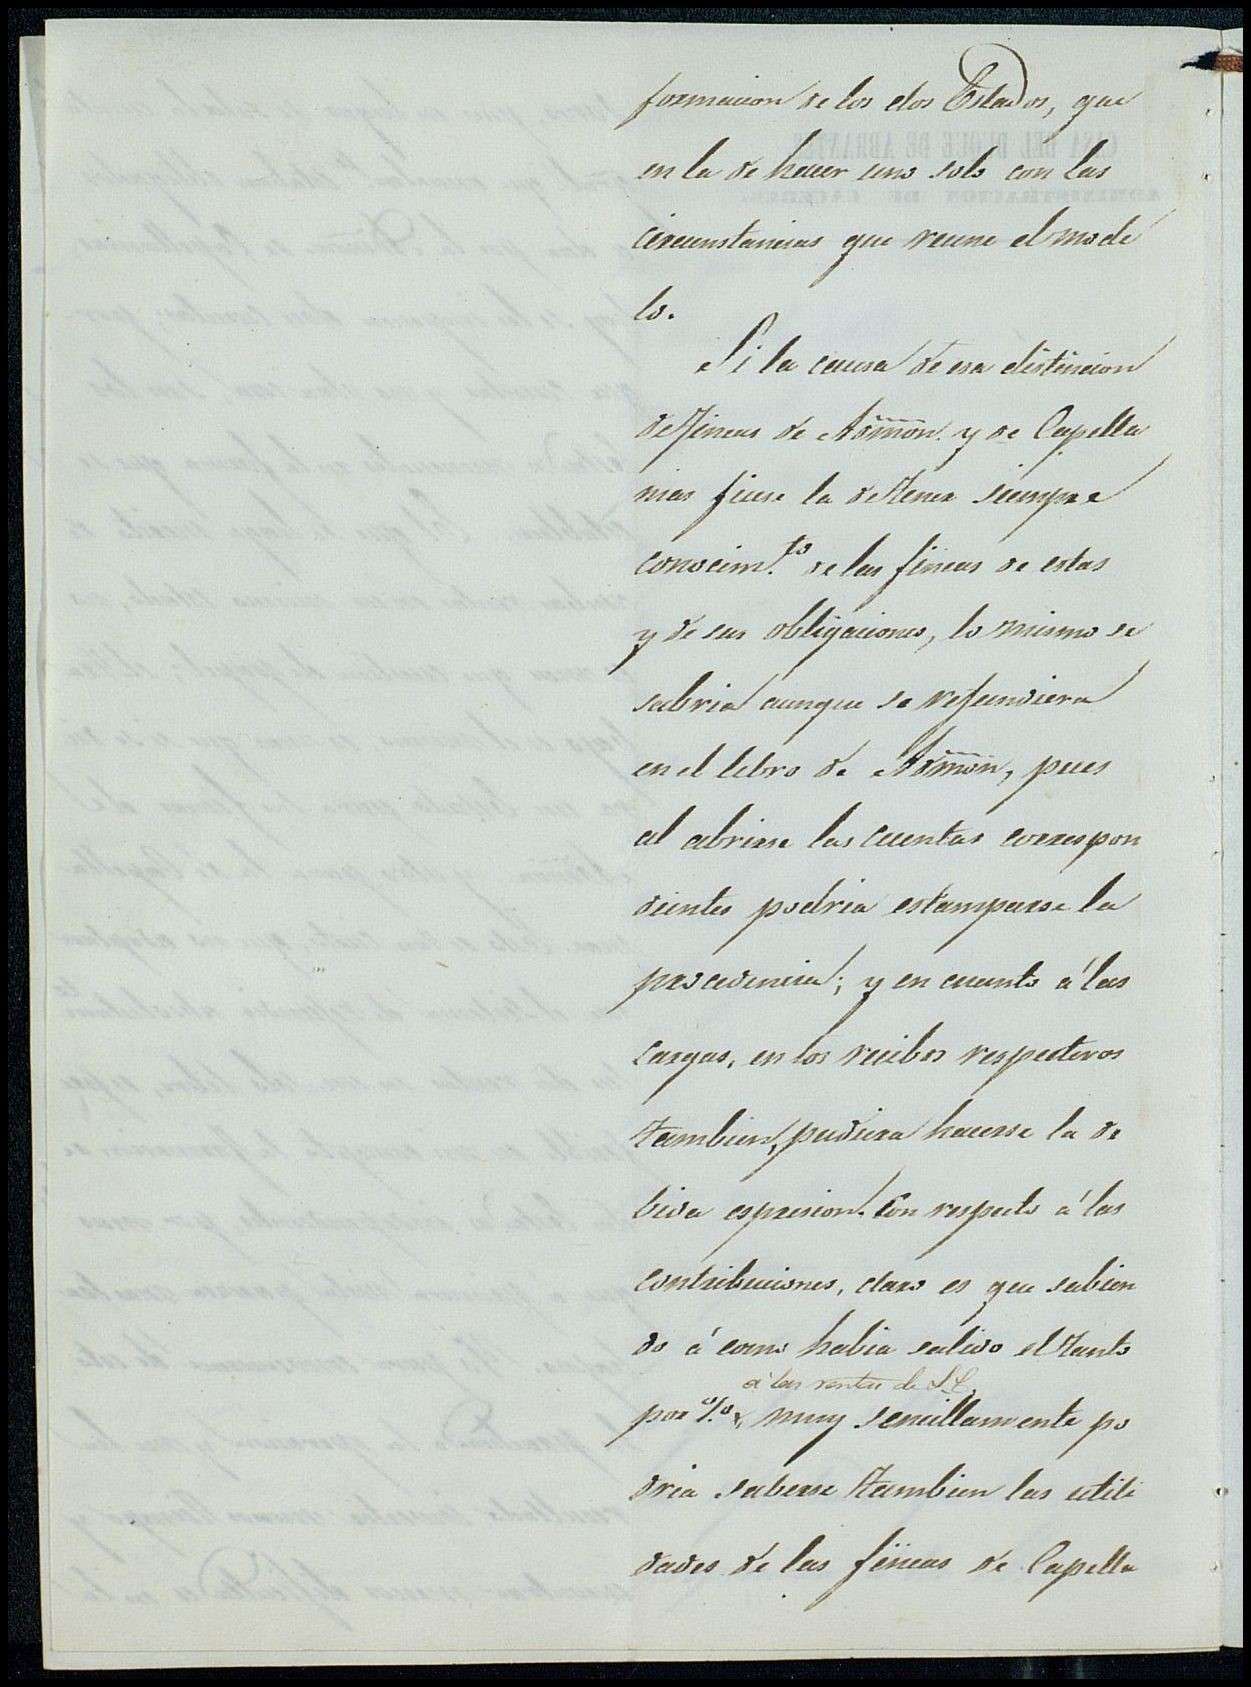 formacion de los dos Estados, que
en la de hacer uno solo con las
circunstancias que reune el mode
lo.
Si la causa de esa distincion
de fincas de Admon. y de Capella
nias fuese la de tener siempre
conocim.to de las fincas de estas
y de sus obligaciones, lo mismo se
sabria aunque se refundiera
en el libro de Admon, pues
al abrirse las cuentas correspon
dientes podria estamparse la
procedencia; y en cuanto á las
cargas, en los recibos respectivos
tambien, pudiera hacerse la de
bida espresion. Con respecto á las
contribuciones, claro es que sabien
do á como habia salido el tanto
á las rentas de S.E.
por % muy sencillamente po
dria saberse tambien las utili
dades de las fincas de Capella